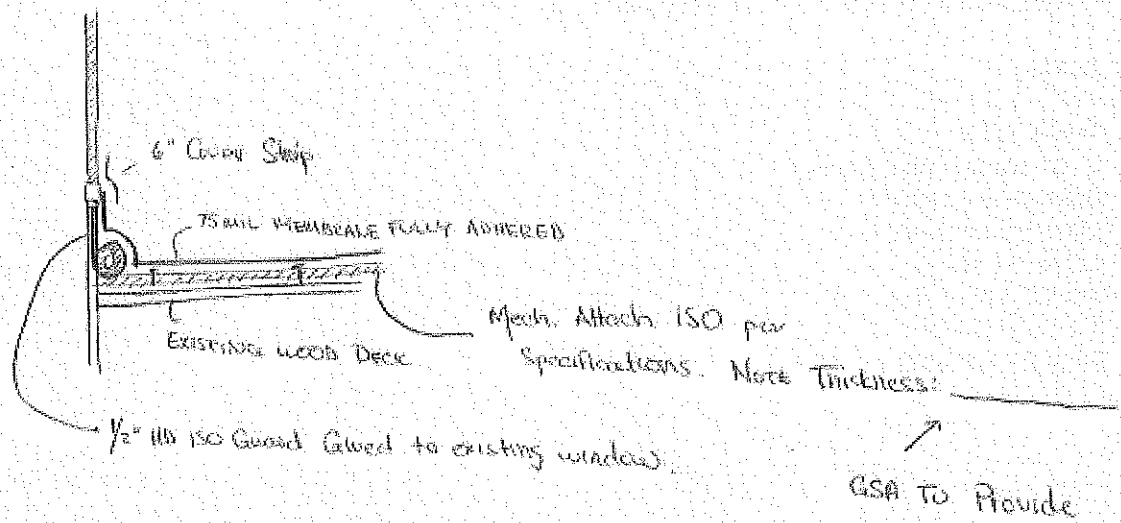 6" Cover Strip
75 MIL MEMBRANE FULLY ADHERED
EXISTING WOOD DECK
Mech. Attach ISO per
Specifications. Note Thickness:
1/2" HD ISO Guard Glued to existing window.
GSA To Provide